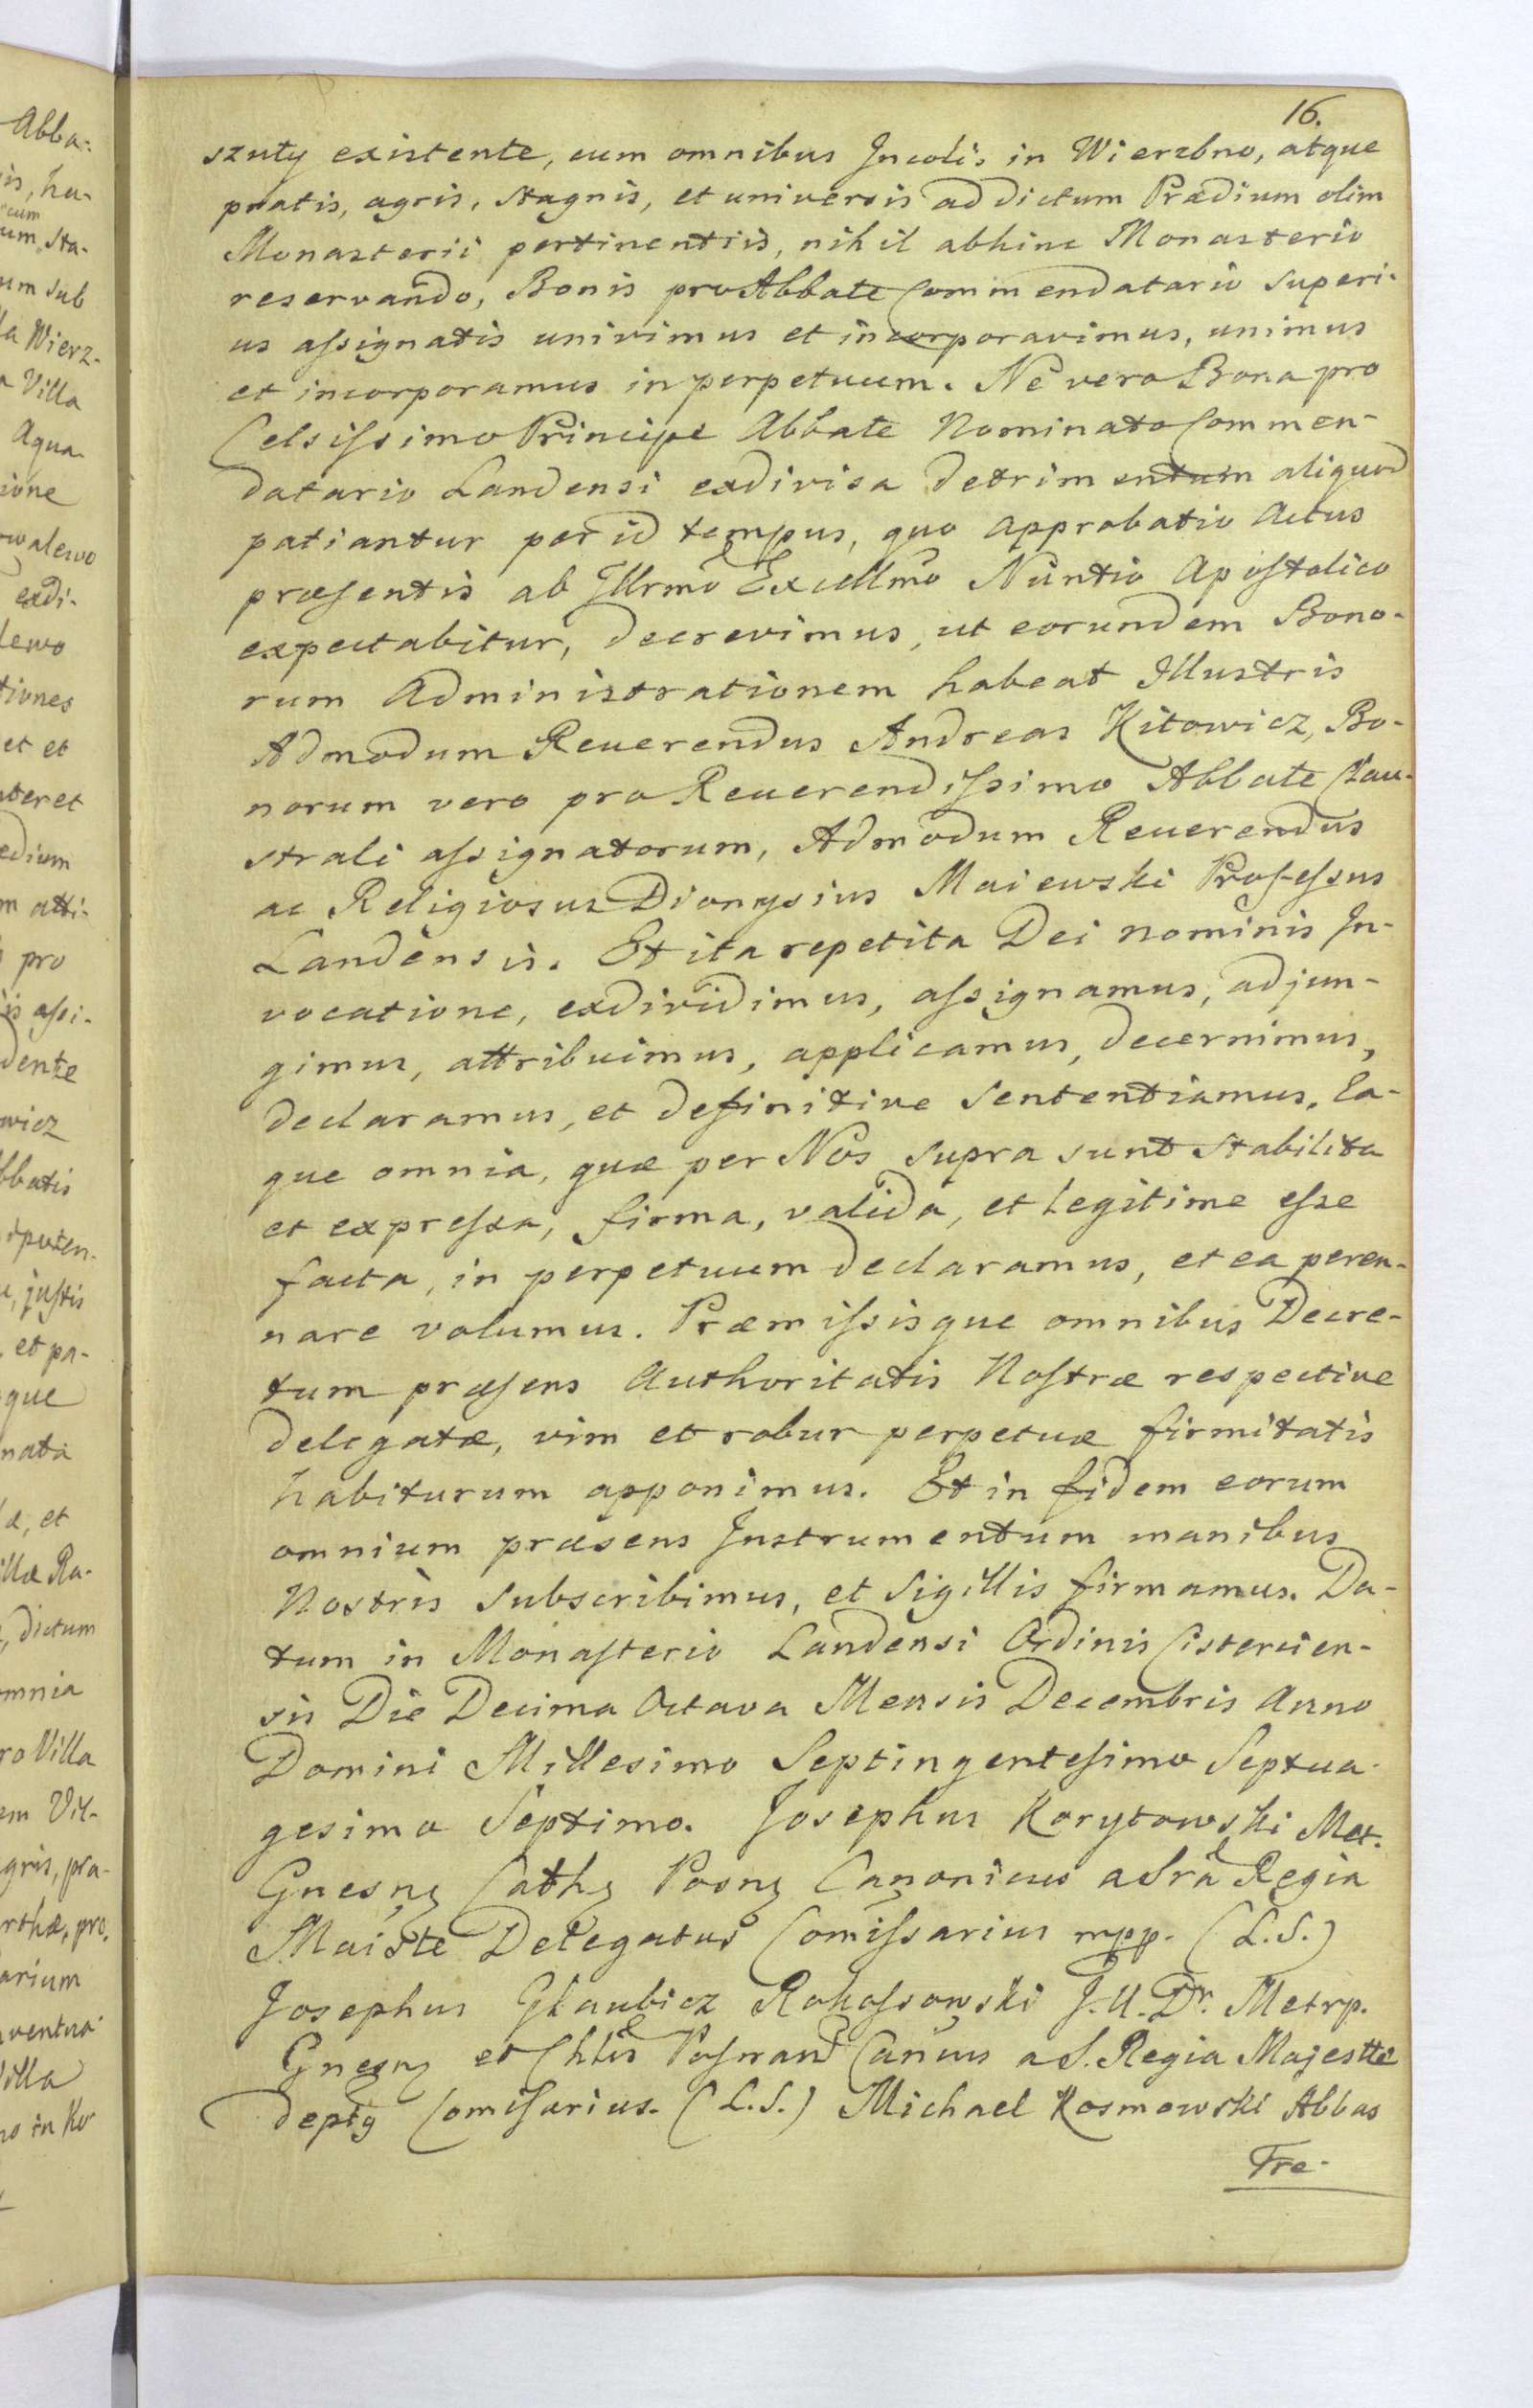 16.
szuty existente, cum omnibus Incolis in Wierzbno, atque
pratis, agris, stagnis, et universis ad dictum Prædium olim
Monasterii pertinentiis, nihil abhinc Monasterio
reservando, Bonis pro Abbate Commendatario superi-
us assignatis univimus et incorporavimus, unimus
et incorporamus in perpetuum. Ne vero Bona pro
Celsissimo Principe Abbate Nominato Commen-
datario Landensi exdivisa detrimentum aliquod
patiantur per id tempus, quo approbatio Actus
præsentis ab Illrmo Excellmo Nuntio Apostolico
expectabitur, decrevimus, ut eorundem Bono-
rum Administrationem habeat Illustris
Admodum Reuerendus Andreas Kitowicz, Bo-
norum vero pro Reuerendissimo Abbate Clau-
strali assignatorum, Admodum Reuerendus
ac Religiosus Dionysius Maiewski Professus
Landensis. Et ita repetita Dei nominis In-
vocatione, exdividimus, assignamus, adjun-
gimus, attribuimus, applicamus, decernimus,
declaramus, et definitive sententiamus. Ea-
que omnia, quæ per Nos supra sunt stabilita
et expressa, firma, valida, et legitime esse
facta, in perpetuum declaramus, et ea peren-
nare volumus. Præmissisque omnibus Decre-
tum præsens Authoritatis Nostræ respective
delegatæ, vim et robur perpetuæ firmitatis
habiturum apponimus. Et in fidem eorum
omnium præsens Instrumentum manibus
Nostris subscribimus, et Sigillis firmamus. Da-
tum in Monasterio Landensi Ordinis Cistercien-
sis Die Decima Octava Mensis Decembris Anno
Domini Millesimo Septingentesimo Septua-
gesimo Septimo. Josephus Korytowski Met.
Gnesnȝ Cathȝ Posnȝ Canonicus a Sra Regia
Maiste Delegatus Comissarius mpp. (L.S.)
Josephus Glaubicz Rokossowski J.U.Dr. Metrp.
Gnesnȝ et Chlis Posnan Canius a S. Regia Majestte
Comisarius. (L.S.) Michael Kosmowski Abbas
Tre-
Abba-
is, ha-
cum
um, Sta-
um sub
la Wierz-
a Villa
Aqua-
ione
owalewo
exdi-
lewo
tiones
et et
ter et
edium
m atti-
pro
is assi-
dente
wicz
bbatis
eputen-
, justis
, et pa-
que
nata
, et
illæ Ra-
, dictum
omnia
ro Villa
em Vil-
gris, pra-
rthæ, pro,
arium
ventua-
illa
no in Ko-